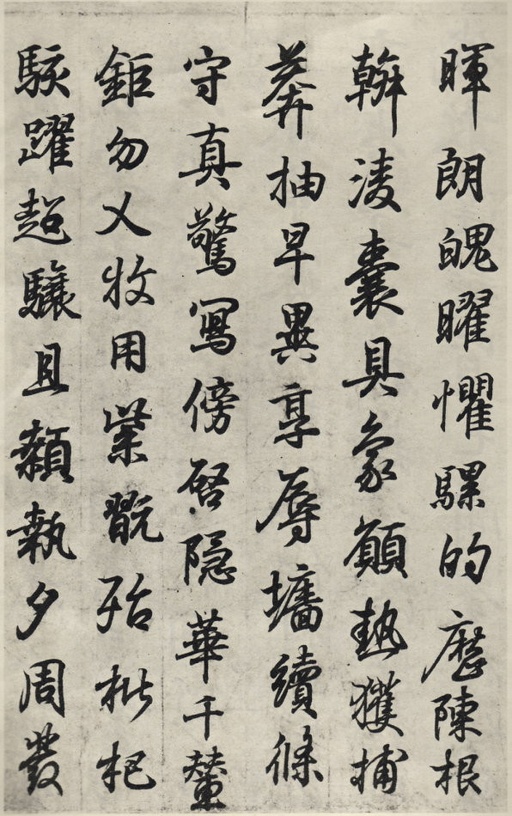 暉朗魄曜懼騾的歷陳根
斡淩囊具象願熱獲捕
莽抽早異享辱墻續條
守真驚寫傍啓隱華千輦
鉅勿乂牧用紫翫殆枇杷
駭躍超驤且顙執夕周發